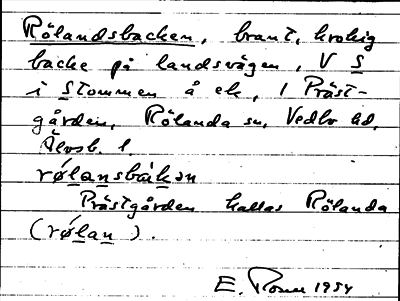 Rölandsbacken, brant, krokig
backe på landsvägen, V S
i Stommen å ek, 1 Präst-
gården, Rölanda sn, Vedbo hd,
Älvsb. l.
rølansbákən
Prästgården kallas Rölanda
(rølan).
E. 1954